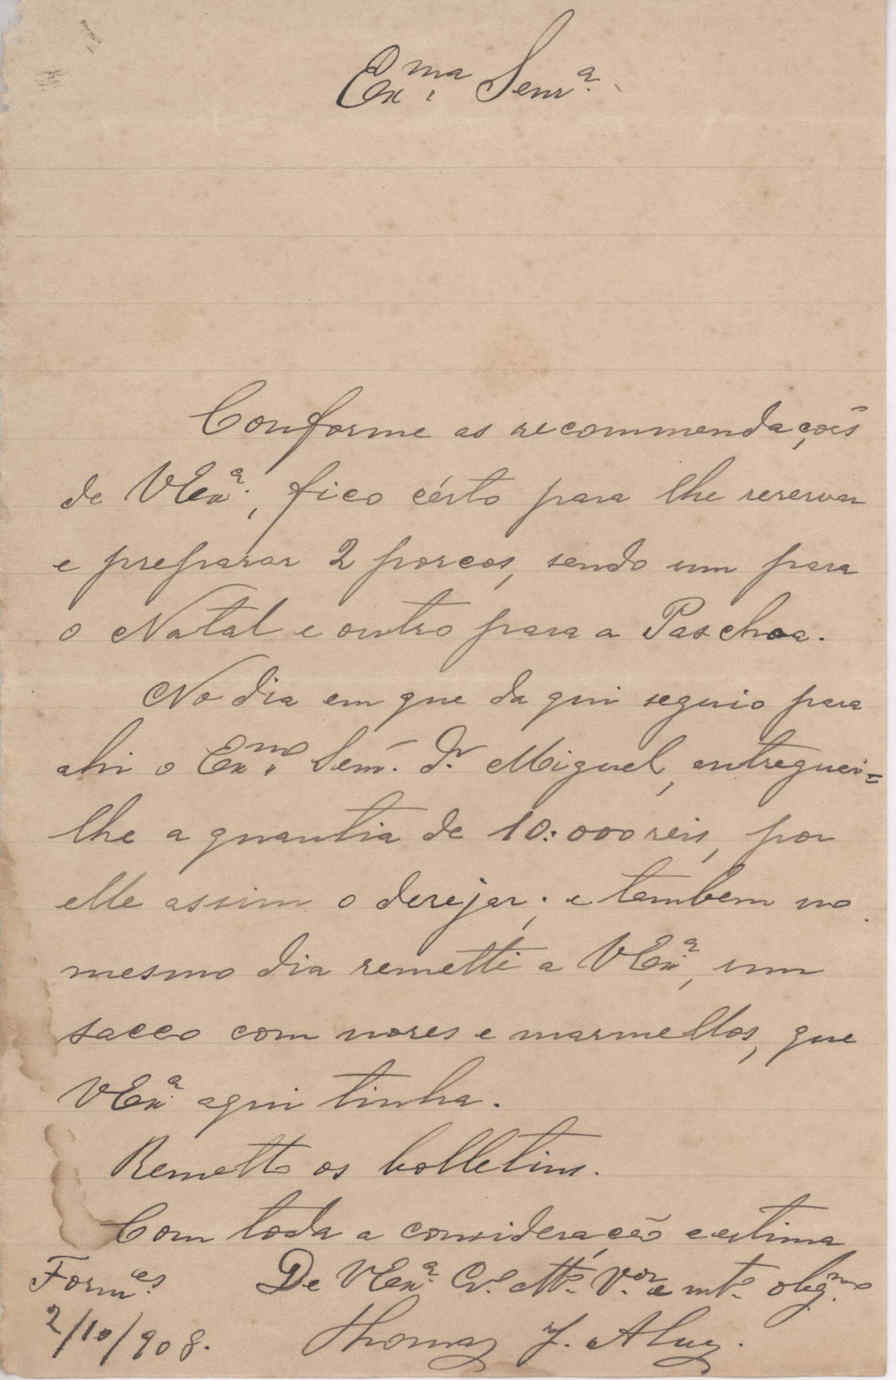 Exma. Senra.
Conforme as recommendações
de VExa., fico cérto para lhe reservar
e preparar 2 porcos, sendo um para
o Natal e outro para a Paschoa.
No dia em que da qui seguio para
ahi o Exmo. Senr. Dr. Miguel, entreguei=
lhe a quantia de 10:000 reis, por
elle assim o desejar; e tambem no
mesmo dia remetti a VExa., um
sacco com nozes e marmellos, que
VExa. aqui tinha.
Remetto os bolletins.
Com toda a consideração e estima
De VExa. Cr.º att.º V.or e mt.º obg.mo
Form.es
2/10/908.
Thomaz J.